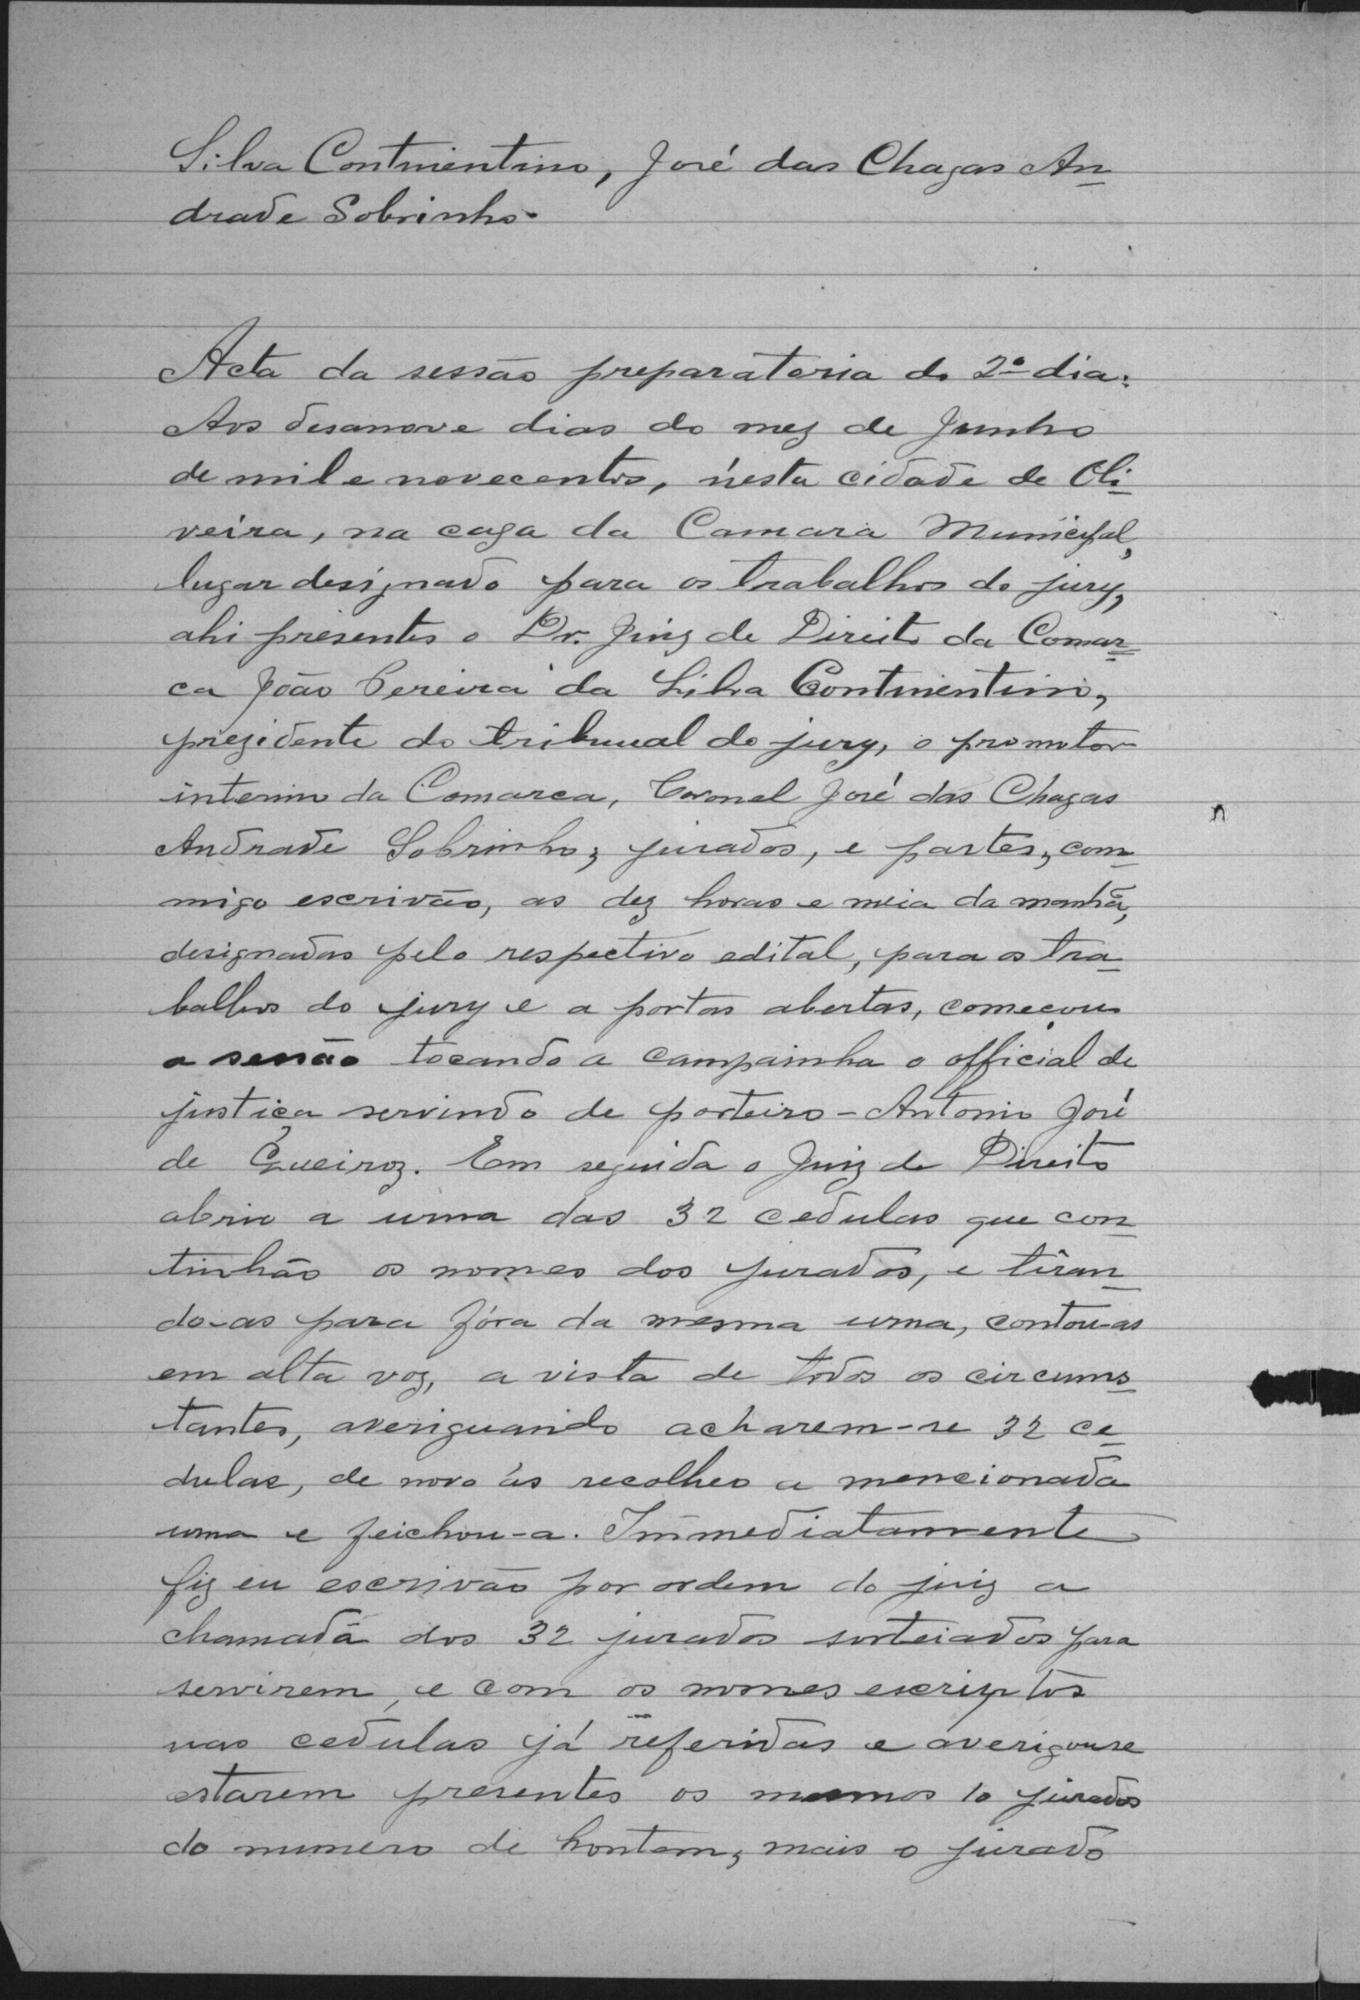 Silva Contimentino, José das Chagas An-
drade Sobrinho.
Acta da sessão preparatoria do 2º dia:
Aos desanove dias do mez de Junho
de mil e novecentos, nésta cidade de Oli-
veira, na caza da Camara Municipal,
lugar designado para os trabalhos do jury,
ahi presentes o Dr. Juiz de Direito da Comar-
ca João Pereira da Silva Contimentino,
prezidente do tribunal do jury, o promotor
interino da Comarca, Coronel José das Chagas
Andrade Sobrinho, jurados, e partes, com-
migo escrivão, as dez horas e meia da manhã,
designadas pelo respectivo edital, para os tra-
balhos do jury e a portas abertas, começou
a sessão tocando a campainha o official de
justiça servindo de porteiro - Antonio José
de Queiroz. Em seguida o Juiz de Direito
abrio a urna das 32 cedulas que con-
tinhão os nomes dos jurados, e tiran-
do-as para fóra da mesma urna, contou-as
em alta voz, a vista de todos os circums-
tantes, averiguando acharem-se 32 ce-
dulas, de novo ás recolheo a mencionada
urna e feichou-a. Immediatamente
fiz eu escrivão por ordem do juiz a
chamada dos 32 jurados sorteiados para
servirem, e com os nomes escriptos
nas cedulas já referidas e averigou-se
estarem presentes os mesmos 10 jurados
do numero de hontem, mais o jurado